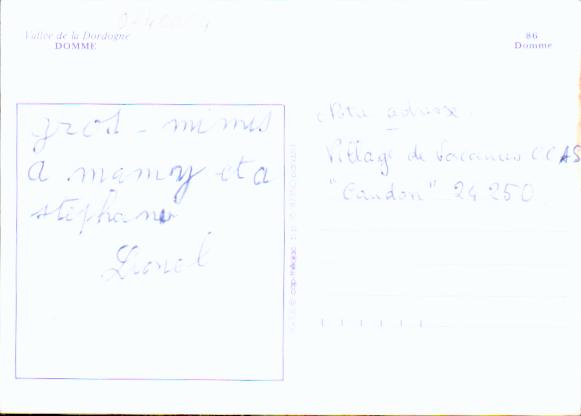 Vallée de la Dordogne
DOMME
86
Domme
gros - mimis
a mamoy et a
stephanie
Lionel
Notre adresse.
Village de Vacances CCAS
"Caudon" 24 250